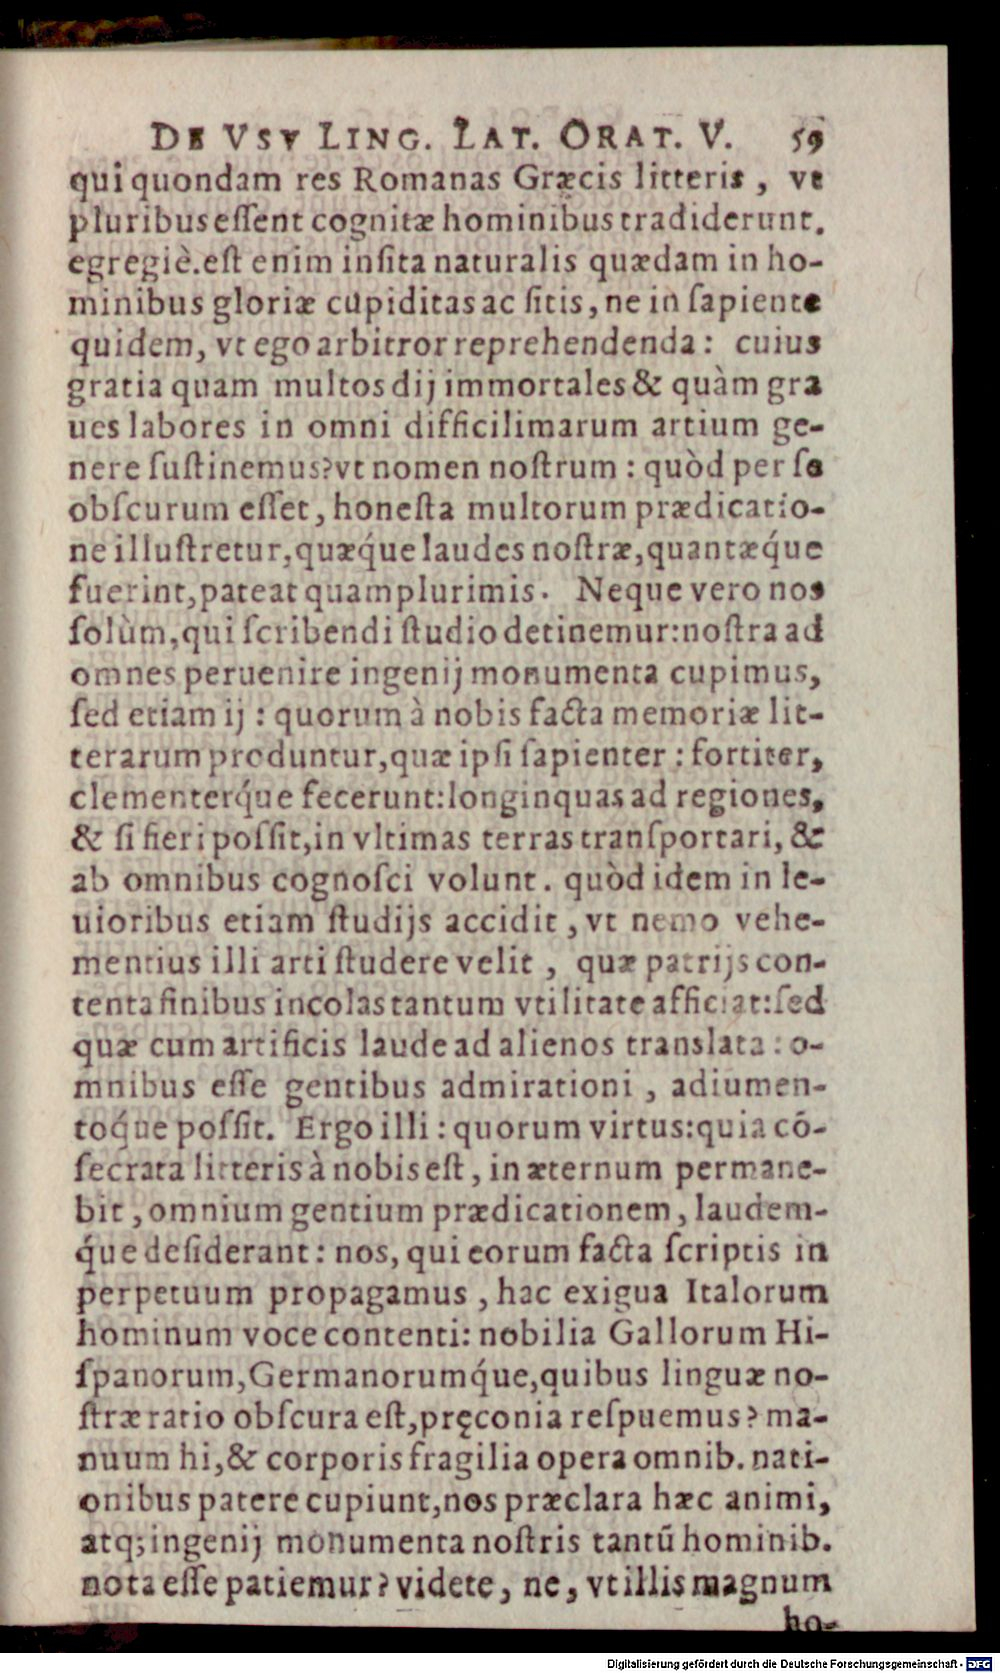 DE VSV LING. LAT. ORAT. V. 59
qui quondam res Romanas Græcis litteris, vt
pluribus eſſent cognitæ hominibus tradiderunt.
egregiè. eſt enim inſita naturalis quædam in ho-
minibus gloriæ cupiditas ac ſitis, ne in ſapiente
quidem, vt ego arbitror reprehendenda: cuius
gratia quam multos dij immortales & quàm gra
ues labores in omni difficilimarum artium ge-
nere ſuſtinemus? vt nomen noſtrum: quòd per ſe
obſcurum eſſet, honeſta multorum prædicatio-
ne illuſtretur, quæq́ue laudes noſtræ, quantæq́ue
fuerint, pateat quamplurimis. Neque vero nos
ſolùm, qui ſcribendi ſtudio detinemur: noſtra ad
omnes peruenire ingenij monumenta cupimus,
ſed etiam ij: quorum à nobis facta memoriæ lit-
terarum produntur, quæ ipſi ſapienter: fortiter,
clementerq́ue fecerunt: longinquas ad regiones,
& ſi fieri poſſit, in vltimas terras tranſportari, &
ab omnibus cognoſci volunt. quòd idem in le-
uioribus etiam ſtudijs accidit, vt nemo vehe-
mentius illi arti ſtudere velit, quæ patrijs con-
tenta finibus incolas tantum vtilitate afficiat: ſed
quæ cum artificis laude ad alienos translata: o-
mnibus eſſe gentibus admirationi, adiumen-
toq́ue poſſit. Ergo illi: quorum virtus: quia cō-
ſecrata litteris à nobis eſt, in æternum permane-
bit, omnium gentium prædicationem, laudem-
q́ue deſiderant: nos, qui eorum facta ſcriptis in
perpetuum propagamus, hac exigua Italorum
hominum voce contenti: nobilia Gallorum Hi-
ſpanorum, Germanorumq́ue, quibus linguæ no-
ſtræ ratio obſcura eſt, pręconia reſpuemus? ma-
nuum hi, & corporis fragilia opera omnib. nati-
onibus patere cupiunt, nos præclara hæc animi,
atq; ingenij monumenta noſtris tantū hominib.
nota eſſe patiemur? videte, ne, vt illis magnum
ho-
Digitalisierung gefördert durch die Deutsche Forschungsgemeinschaft - DFG